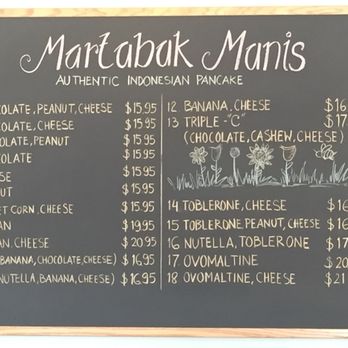 Martabak Manis
AUTHENTIC INDONESIAN PANCAKE
PEANUT, CHEESE $15.95
CHEESE $15.95
PEANUT $15.95
$15.95
$15.95
$15.95
CORN, CHEESE $15.95
$19.95
CHEESE $20.95
BANANA, CHOCOLATE, CHEESE) $16.95
NUTELLA, BANANA, CHEESE) $16.95
12 BANANA, CHEESE $16
13 TRIPLE -"C" $17
(CHOCOLATE, CASHEW, CHEESE)
14. TOBLERONE, CHEESE $16
15 TOBLERONE, PEANUT, CHEESE $16
16 NUTELLA, TOBLERONE $17
17 OVOMALTINE $20
18 OVOMALTINE, CHEESE $21